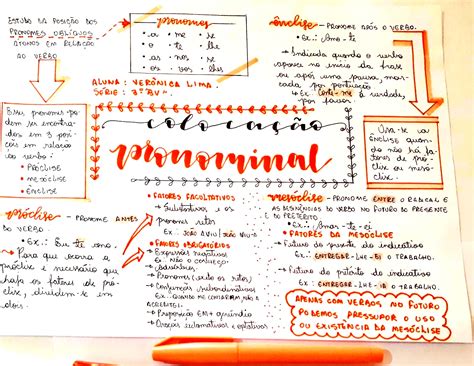 ESTUDO DA POSIÇÃO DOS
PRONOMES OBLÍQUOS
ÁTONOS EM RELAÇÃO
AO VERBO
pronomes
• a • me • se
• o • te • lhe
• as • nos • se
• os • vos • lhes
ALUNA: VERÔNICA LIMA.
SÉRIE: 3º "BV".
Esses pronomes po-
dem ser encontra-
dos em 3 posi-
ções em relação
ao verbo:
• PRÓCLISE
• MESÓCLISE
• ÊNCLISE
colocação
pronominal
ênclise - PRONOME APÓS O VERBO.
• Ex.: Amo-te
Indicada quando o verbo
aparece no início da frase
ou após uma pausa, mar-
cada por pontuação
Ex. é verdade,
por favor!
Usa-se a
ÊNCLISE quan-
do não há fa-
tores de pró-
clise ou mesó-
clise.
próclise - PRONOME ANTES
DO VERBO.
• Ex.: Eu te amo.
Para que ocorra a
próclise é necessário que
haja os fatores de pró-
clise, dividem-se em
dois.
• FATORES FACULTATIVOS
Substantivos e os
pronomes retos
Ex. JOÃO A VIU / VIU-O
• FATORES OBRIGATÓRIOS
Expressões negativas
Ex. NÃO O CONHEÇO
Advérbios
Pronomes (exceto os retos)
Conjunções subordinativas
Ex. QUANDO ME CONTARAM, NÃO
ACREDITEI.
Preposição EM + gerúndio
Orações exclamativas e optativas
mesóclise - PRONOME ENTRE O RADICAL E
AS DESINÊNCIAS DO VERBO NO FUTURO DO PRESENTE
E DO PRETÉRITO.
• Ex.: Amar-te-ei
• FATORES DA MESÓCLISE
Futuro do presente do indicativo
Ex. ENTREGAR-LHE-EI O TRABALHO.
Futuro do pretérito do indicativo
Ex. ENTREGAR-LHE-IA O TRABALHO.
APENAS COM VERBOS NO FUTURO
PODEMOS PRESSUPOR O USO
OU EXISTÊNCIA DA MESÓCLISE